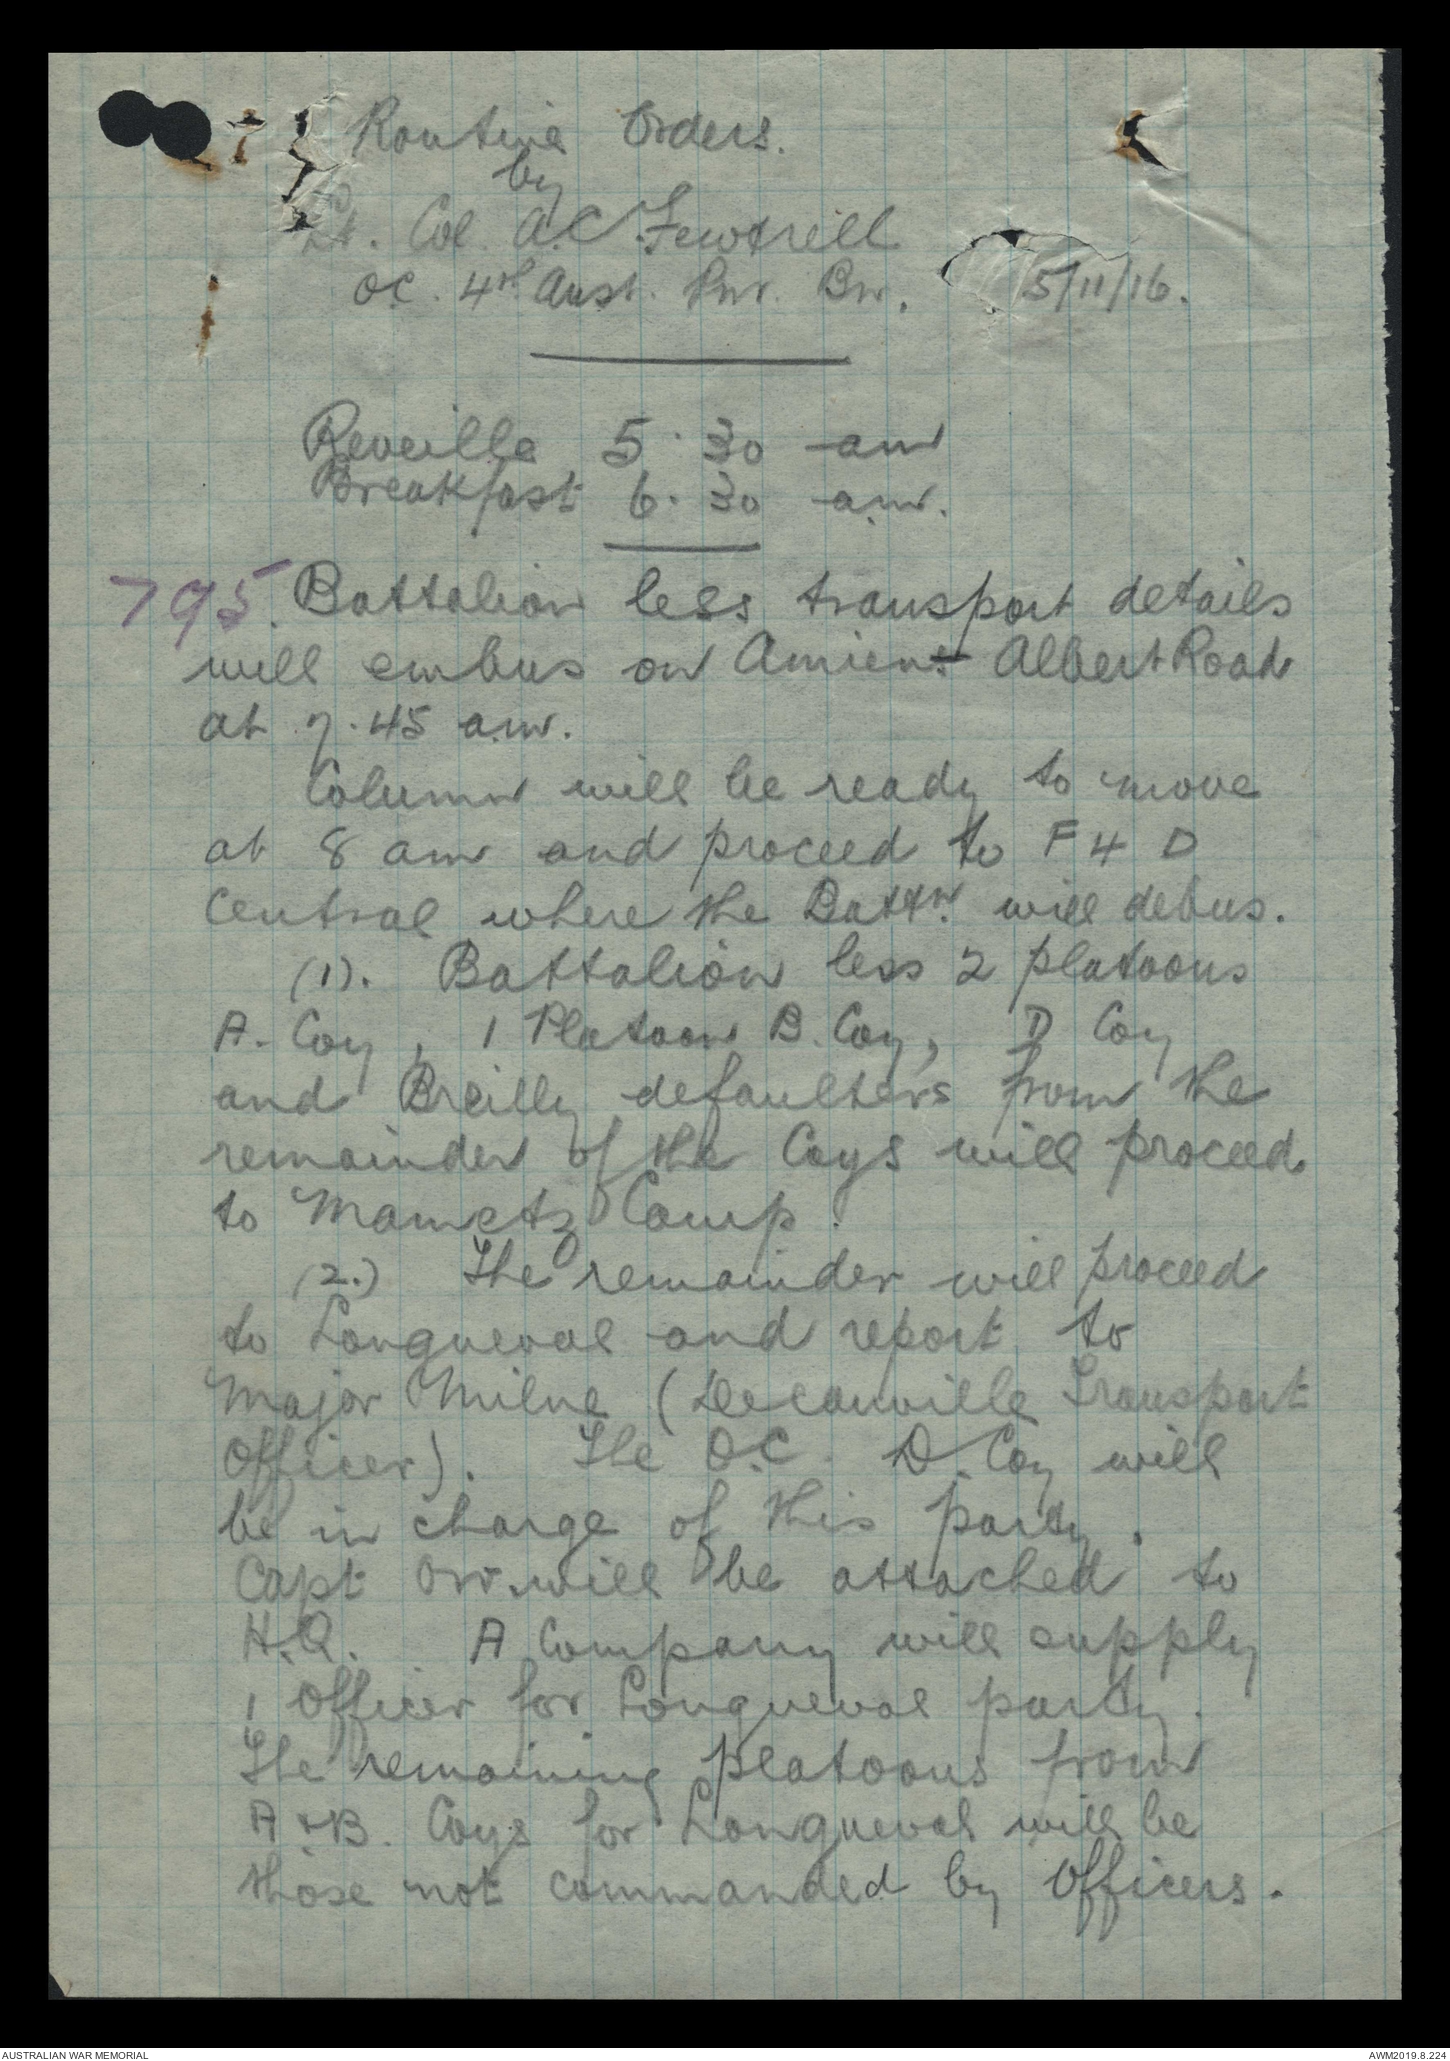 Routine Orders.
by
Lt. Col. A.C. Fewtrell
OC. 4th Aust. Pnr. Bn. 5/11/16.
Reveille 5.30 am
Breakfast 6.30 a.m.
795. Battalion less transport details
will embus on Amiens - Albert Road
at 7.45 a.m.
Column will be ready to move
at 8 am and proceed to F 4 D
Central where the Battn. will debus.
(1). Battalion less 2 platoons
A. Coy, 1 Platoon B. Coy, D Coy
and defaulters from the
remainder of the Coys will proceed
to Mametz Camp.
(2.) The remainder will proceed
to Longueval and report to
Major Milne (Decauville Transport
Officer). The O.C. D. Coy will
be in charge of this party.
Capt Orr will be attached to
H.Q. A Company will supply
1 Officer for Longueval party.
The remaining platoons from
A + B. Coys for Longueval will be
those not commanded by Officers.
AUSTRALIAN WAR MEMORIAL
AWM2019.8.224